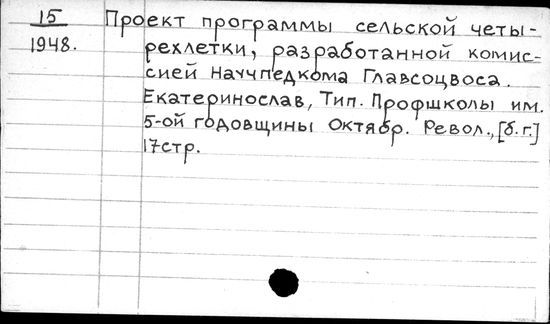 15
1948.
Проект программы сельской четы-
рехлетки, разработанной комис-
сией Научпедкома Главсоцвоса.
Екатеринослав, Тип. Профшколы им.
5-ой годовщины Октябр. Револ., [б.г.]
17стр.